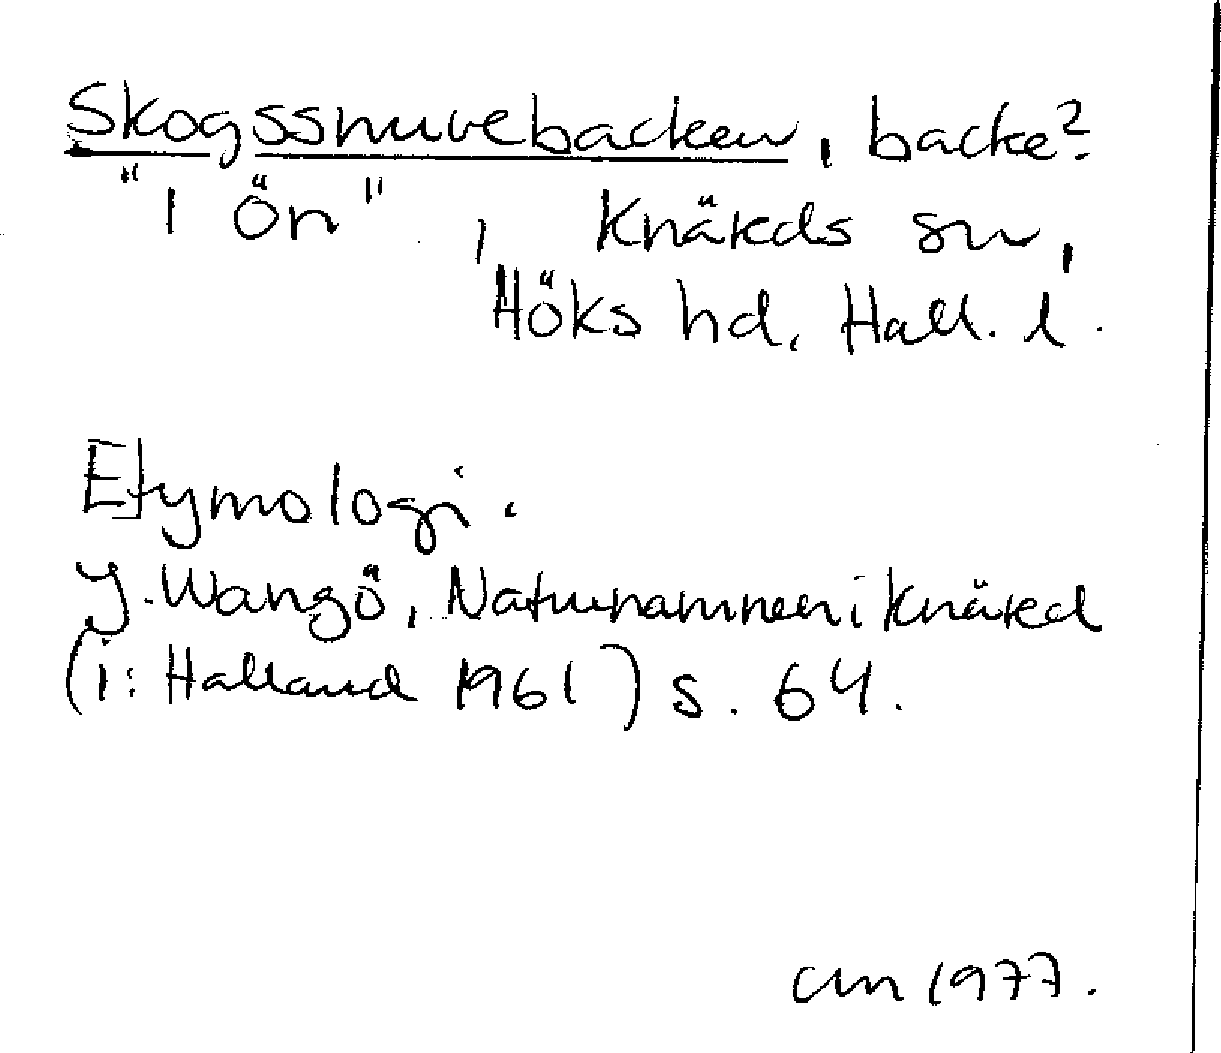 Skogssnuvebacken, backe?
"i Ön", Knäreds sn,
Höks hd. Hall. l.
Etymologi.
J. Wangö, Naturnamnen i Knäred
(i: Halland 1961) s. 64.
cm 1977.